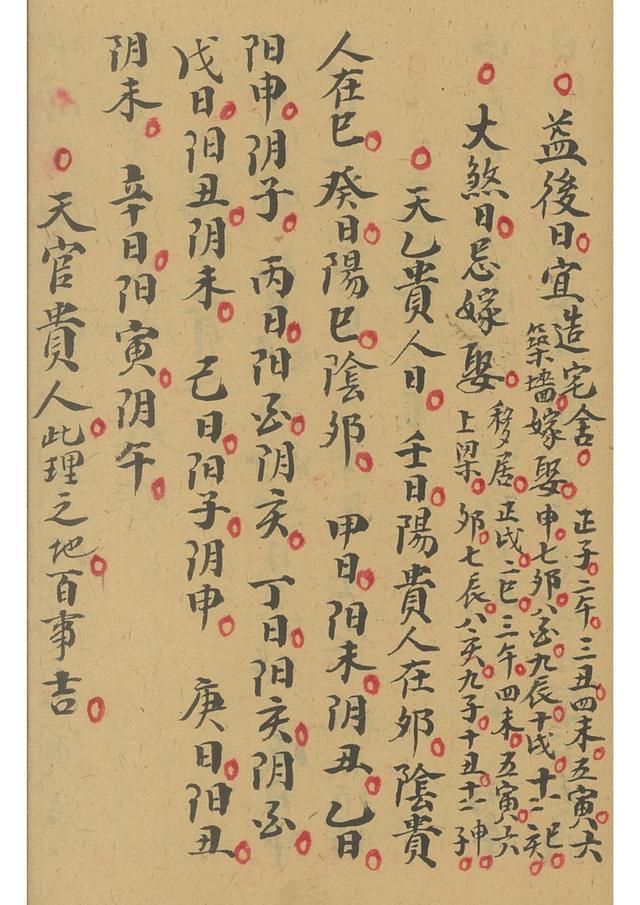 益後日宜造宅舍
築墻嫁娶
正子二午三丑四未五寅六
申七夘八酉九辰十戌十一巳十二亥
大煞日忌嫁娶
移居
上梁
正戌二巳三午四未五寅六
夘七辰八亥九子十丑十一申十二子
天乙貴人日 壬日陽貴人在夘陰貴
人在巳 癸日陽巳陰夘 甲日阳未阴丑 乙日
阳申阴子 丙日阳酉阴亥 丁日阳亥阴酉
戊日阳丑阴未 己日阳子阴申 庚日阳丑
阴未 辛日阳寅阴午
天官貴人此理之地百事吉